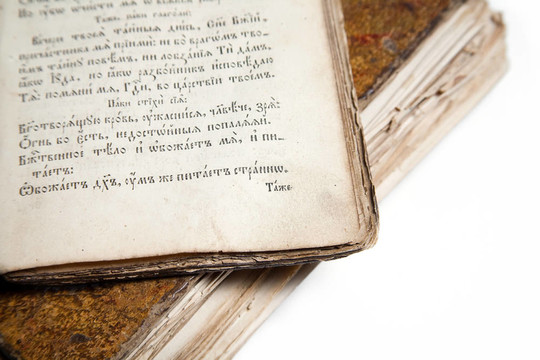 Та́же, па́ки глаго́ли:
Ве́чери твоеѧ̀ та́йныѧ дне́сь, Сн҃е Бж҃їй,
прича́стника мѧ̀ прїимѝ: не бо̀ враго́мъ тво-
и҆́мъ та́йну повѣ́мъ, ни лобза́нїѧ Тѝ да́мъ,
ꙗ҆́кѡ І҆ꙋ́да, но ꙗ҆́кѡ разбо́йникъ и҆сповѣ́даю
Тѧ̀: помѧнѝ мѧ̀, Гд҇и, во ца́рствїи твое́мъ.
Па́ки стїхѝ сїѧ̑:
Бг҃отворѧ́щꙋю кро́вь, ᲂу҆жаснѝсѧ, чл҃вѣ́че, зрѧ̀:
Ѻ҆́гнь бо є҆́сть, недосто́йныѧ попалѧ́ѧй.
Бж҇твенное тѣ́ло и҆ ѡ҆божа́етъ мѧ̀, и҆ пи-
та́етъ:
Ѡ҆божа́етъ дх҃ъ, ᲂу҆́мъ же пита́етъ стра́ннѡ.
Та́же